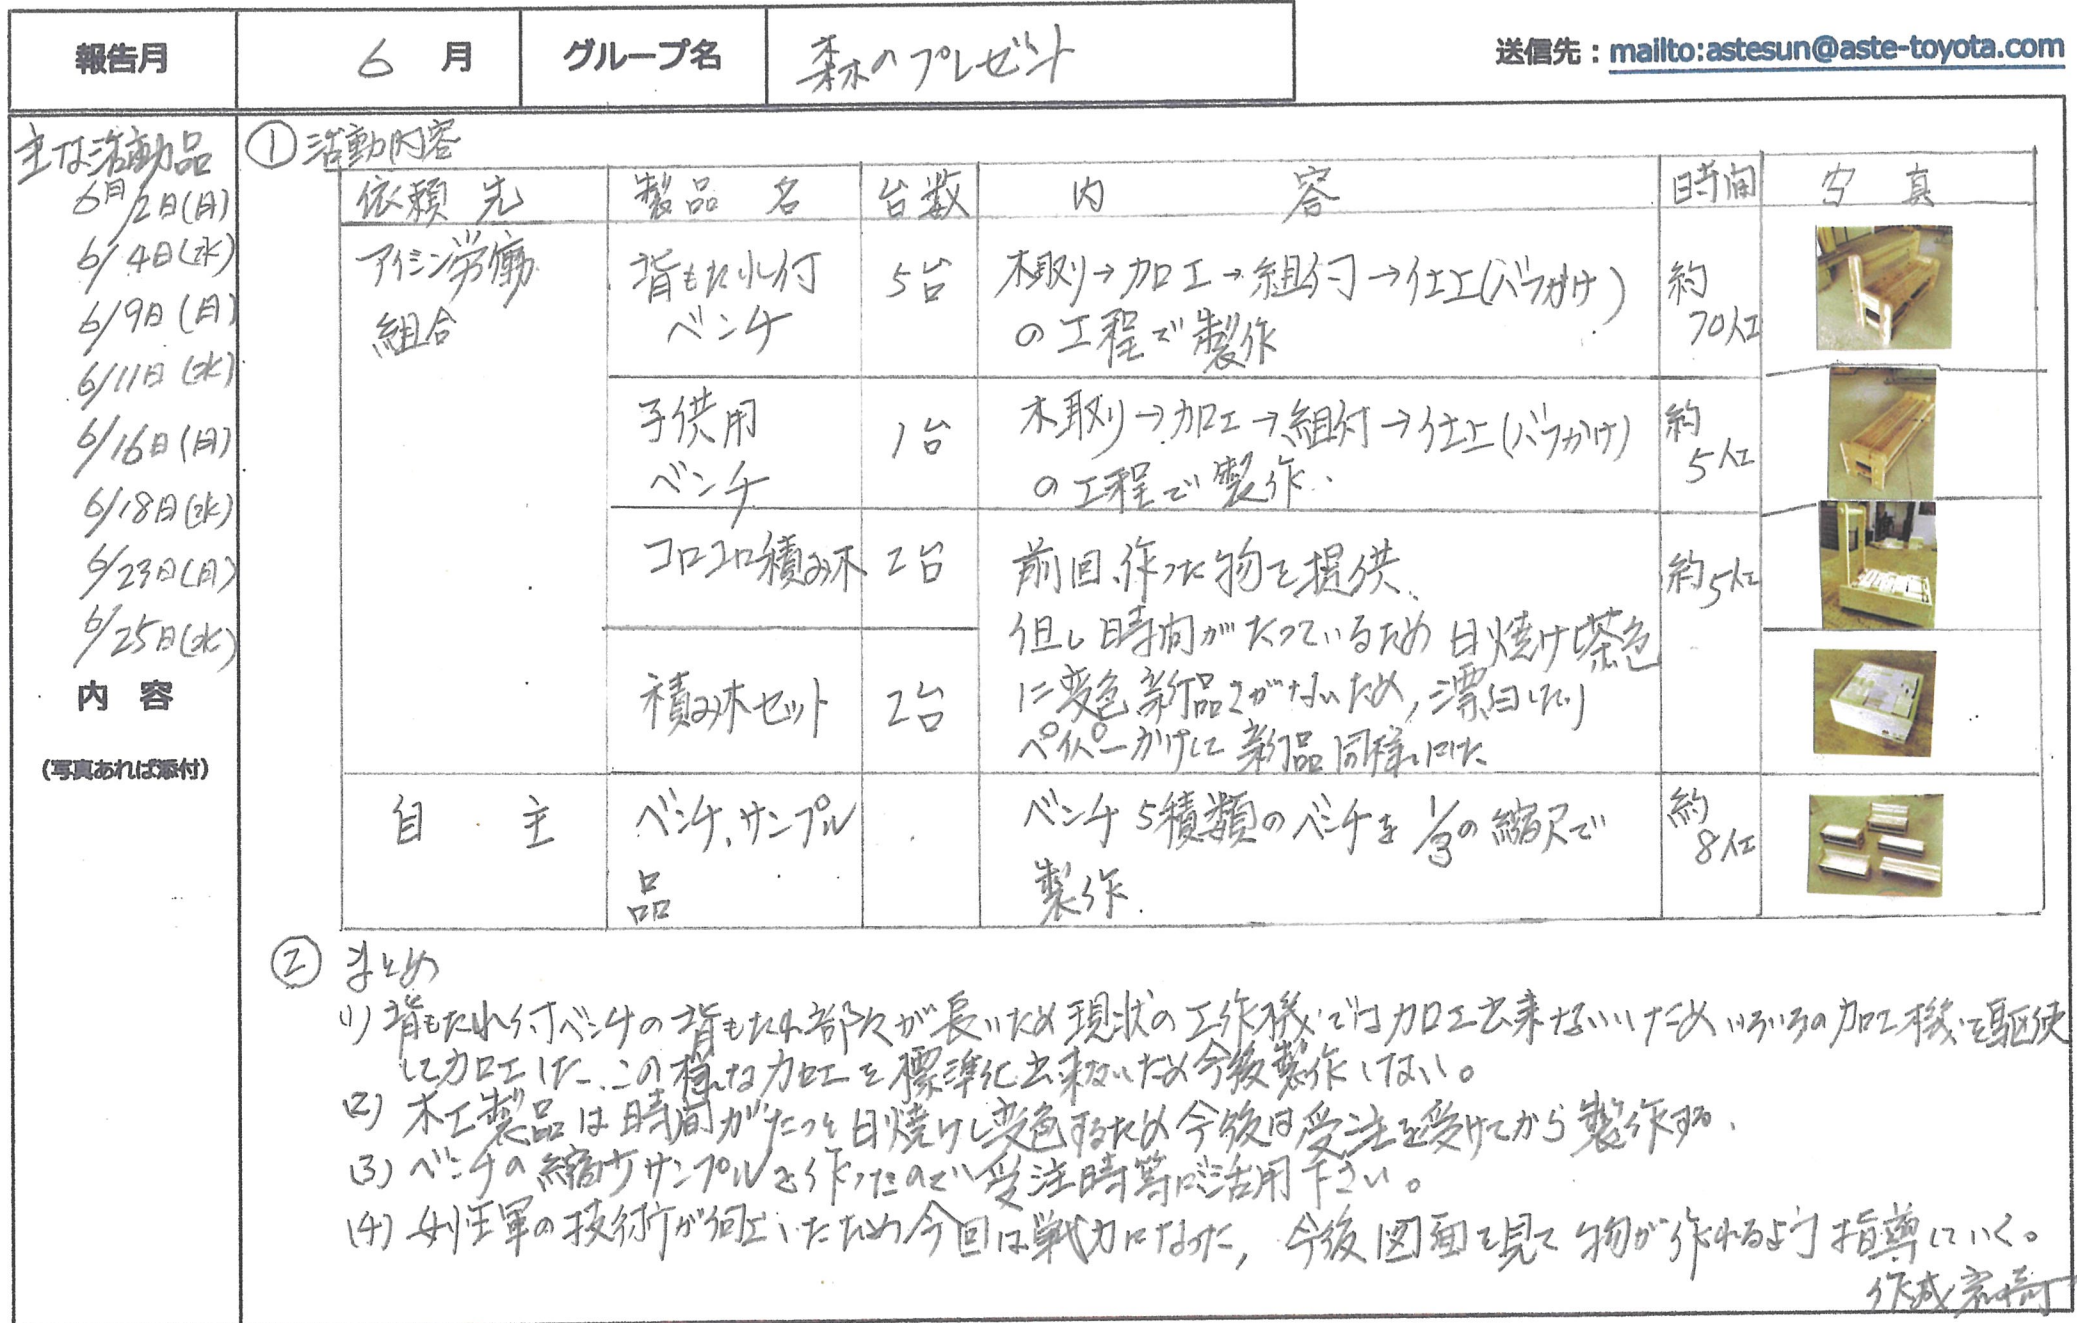 報告月
6 月
グループ名
森のプレゼント
送信先：mailto:astesun@aste-toyota.com
主な活動品
6月/2日(月)
6/4日(水)
6/9日(月)
6/11日(水)
6/16日(月)
6/18日(水)
6/23日(月)
6/25日(水)
内 容
(写真あれば添付)
① 活動内容
依頼先 製品名 台数 内容 時間 写真
アイシン労働
組合
背もたれ付
ベンチ
5台
木取り→加工→組付→仕上(バラかけ)
の工程で製作
約
70人工
子供用
ベンチ
1台
木取り→加工→組付→仕上(バラかけ)
の工程で製作.
約
5人工
コロコロ積み木
2台
前回作った物を提供.
但し時間がたっているため日焼けし茶色
に変色新品さがないため,漂白したり
ペイパーかけして新品同様にした
約5人工
積み木セット
2台
自 主
ベンチ、サンプル
品
ベンチ5積類のベンチを1/3の縮尺で
製作.
約
8人工
② まとめ
(1) 背もたれ付ベンチの背もたれ部分が長いため現状の工作機ではカロエ出来ないいためいろいろの加工機を駆使
して加工した、この様な加工を標準化出来ないため今後製作しない。
(2) 木工製品は時間がたつと日焼けし変色するため今後は受注を受けてから製作する.
(3) ベンチの縮ササンプルを作ったので受注時等に活用下さい。
(4) の技術が向上したため今回は戦力になった, 今後図面を見て物が作れるよう指導していく。
作成